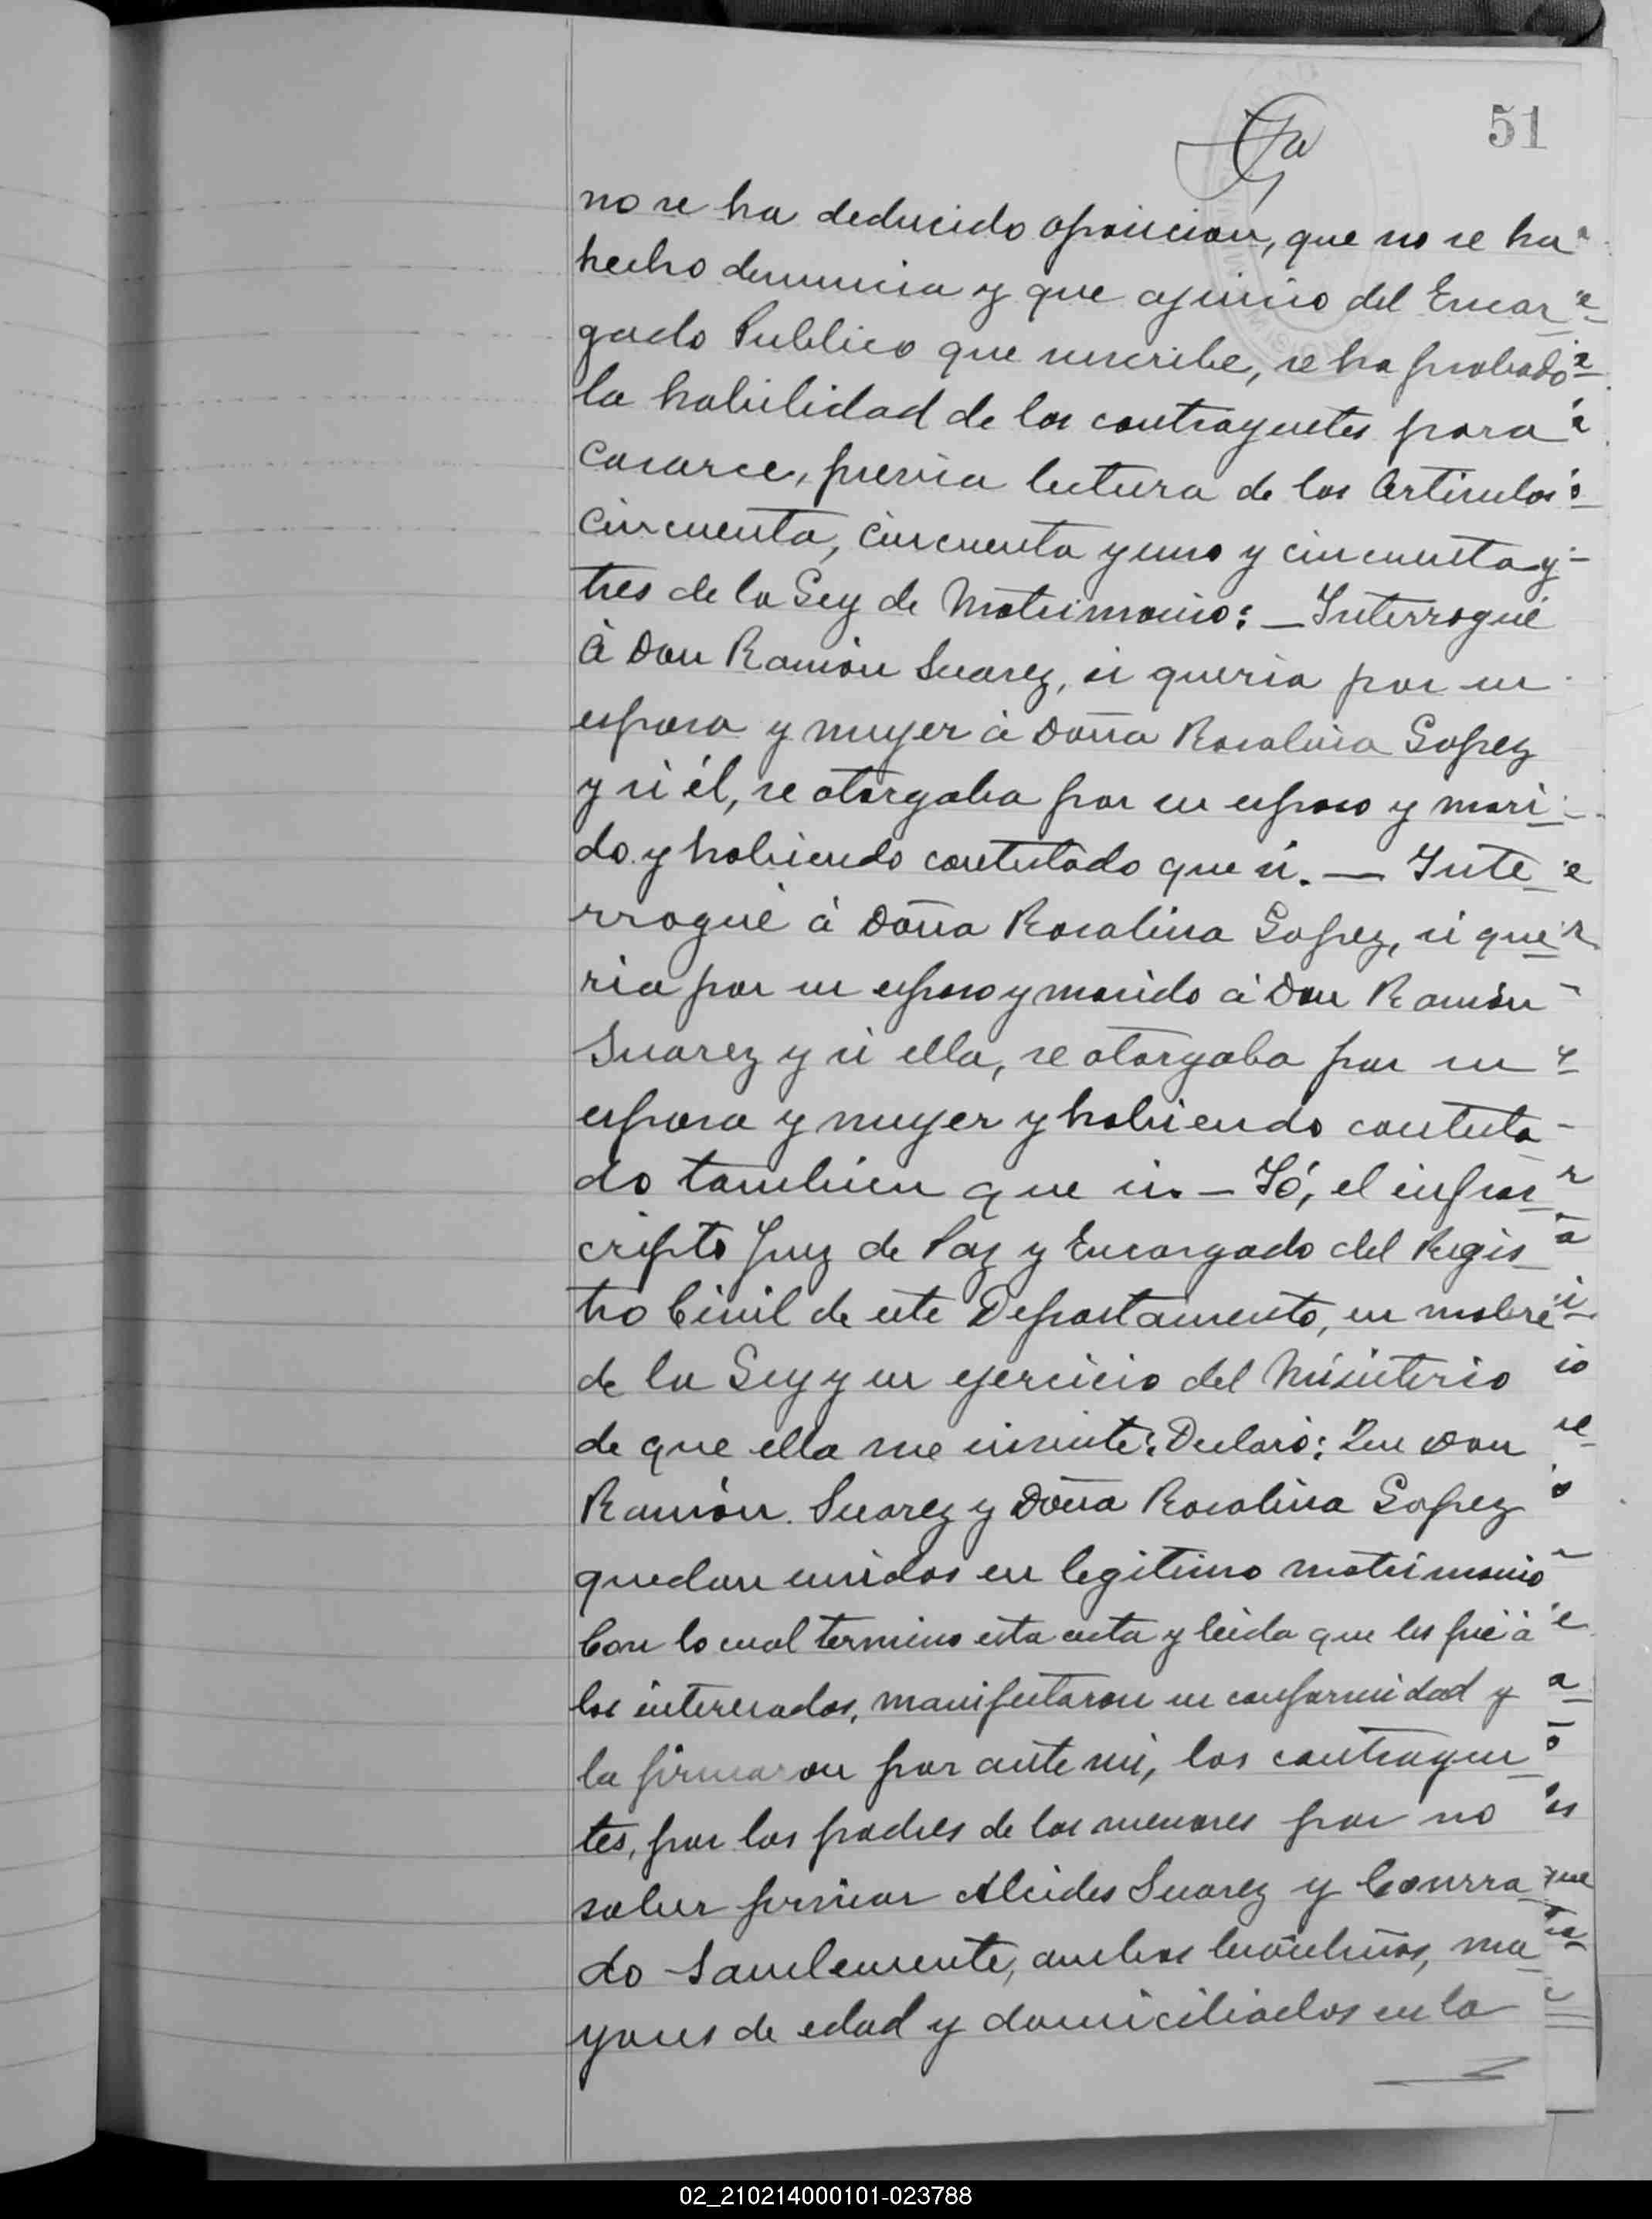 51
no se ha deducido oposicion, que no se ha
hecho denuncia y que ajuicio del Encar
gado Publico que suscribe, se ha probado
la habilidad de los contrayentes para
casarce, previa lectura de los Articulos
cincuenta, cincuenta y uno y cincuenta y
tres de la Ley de Matrimonio: — Interrogué
á Don Ramón Suarez, si queria por su
esposa y mujer á Doña Rosalina Lopez
y si él, se otorgaba por su esposo y mari
do y habiendo contestado que si. — Inte
rrogué á Doña Rosalina Lopez, si que
ria por su esposo y marido á Don Ramón
Suarez y si ella, se otorgaba por su
esposa y mujer y habiendo contesta
do tambien que si. — Yó, el infras
cripto Juez de Paz y Encargado del Regis
tro Civil de este Departamento, en mobre
de la Ley y en ejercicio del Ministerio
de que ella me inviste: Declaró: Que Don
Ramón Suarez y Doña Rosalina Lopez
quedan unidos en legitimo matrimonio
Con lo cual termino esta acta y leida que les fué á
los interesados, manifestaron su conformidad y
la firmaron por ante mi, los contrayen
tes, por los padres de los menores por no
saber firmar Alcides Suarez y Conrra
do Sanclemente, ambos ma
yores de edad y domiciliados en la
02_210214000101-023788